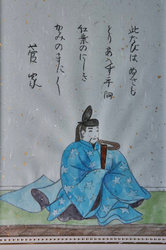 此たびはぬさも
とりあへず手向山
紅葉のにしき
かみのまに〱
菅家